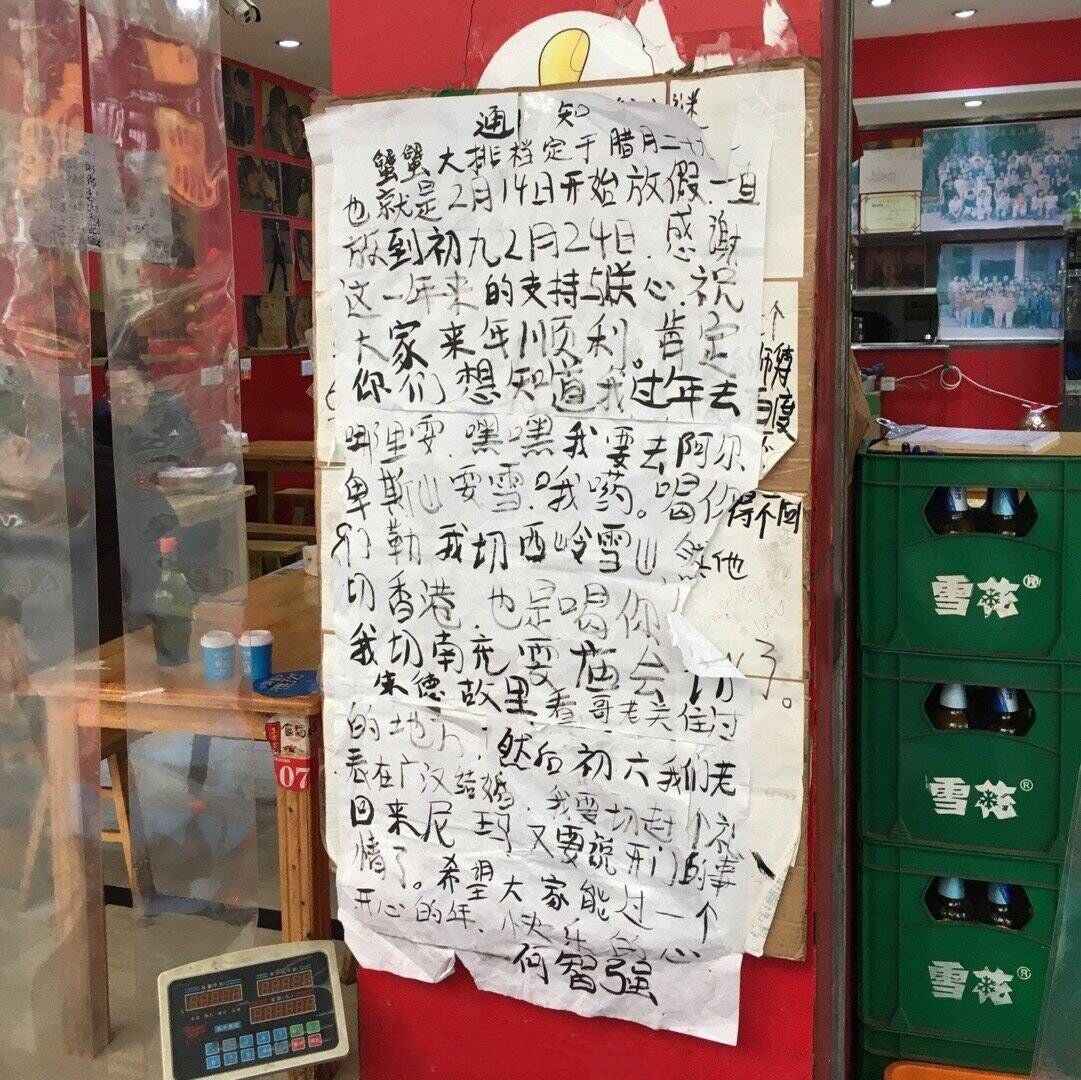 通 知
蟹蟹大排档定于腊月二十
也就是2月14日开始放假一直
放到初九2月24日.感谢
这一年来的支持与关心.祝
大家来年顺利。肯定
你们想知道我过年去
哪里耍.嘿嘿我要去阿尔
卑斯山耍雪.哦哟。喝你
们勒我切西岭雪山
然他
切香港.也是喝你
我切南充耍庙会切
朱德故里看哥老关住过
的地方,然后初六我们老
表在广汉结婚.我要切赶个礼
回来尼玛又要说开门的事
情了。希望大家能过一个
开心的年.快乐的心
何智强
个
师傅
百度
得不回
了。
雪花®
雪花®
雪花®
07